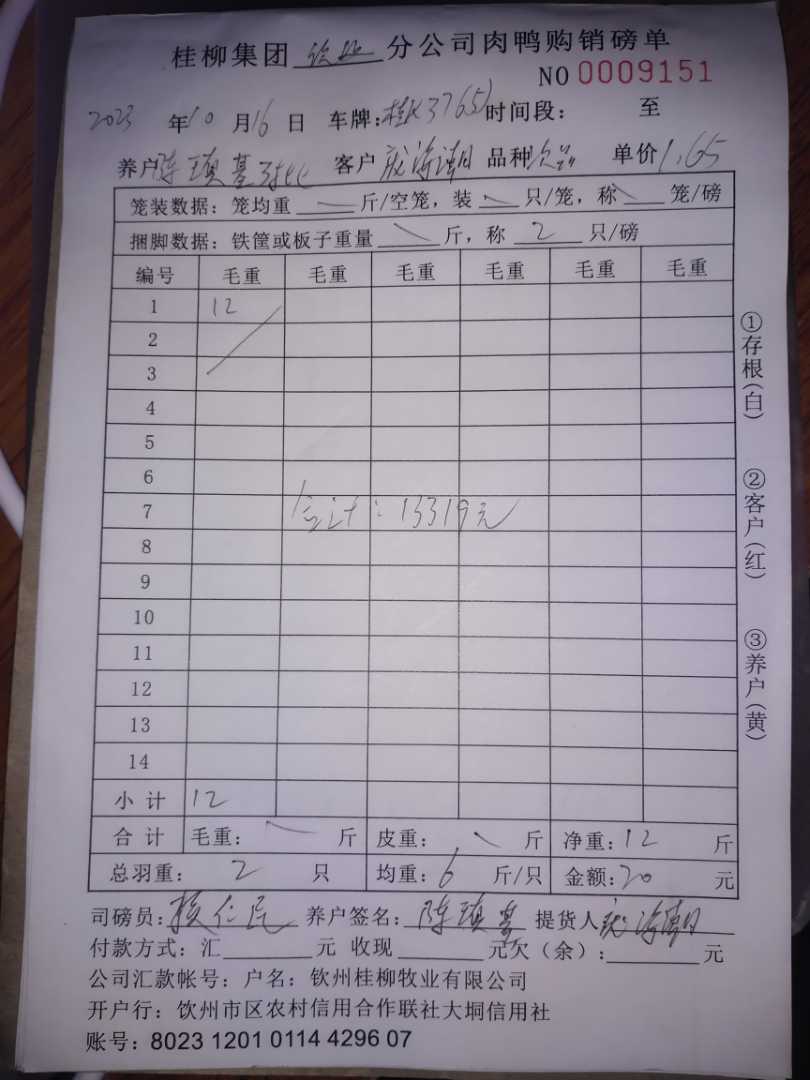 桂柳集团 钦州 分公司肉鸭购销磅单
NO 0009151
2023 年 10 月 16 日 车牌: 桂K37651 时间段: 至
养户 陈 基 客户 海潮 品种 次品 单价 1.65
笼装数据: 笼均重 斤/空笼, 装 只/笼, 称 笼/磅
捆脚数据: 铁筐或板子重量 斤, 称 2 只/磅
编号 毛重 毛重 毛重 毛重 毛重 毛重
1 12
2
3
4
5
6
7 合计: 13319元
8
9
10
11
12
13
14
小计 12
合计 毛重: 斤 皮重: 斤 净重: 12 斤
总羽重: 2 只 均重: 6 斤/只 金额: 20 元
司磅员: 仁民 养户签名: 陈 基 提货人 海潮
付款方式: 汇 元 收现 元欠(余): 元
公司汇款帐号: 户名: 钦州桂柳牧业有限公司
开户行: 钦州市区农村信用合作联社大垌信用社
账号: 8023 1201 0114 4296 07
①存根(白) ②客户(红) ③养户(黄)